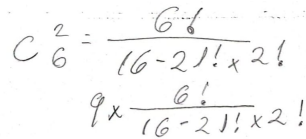 C²₆ = 6! / (6-2)! × 2!
9 × 6! / (6-2)! × 2!